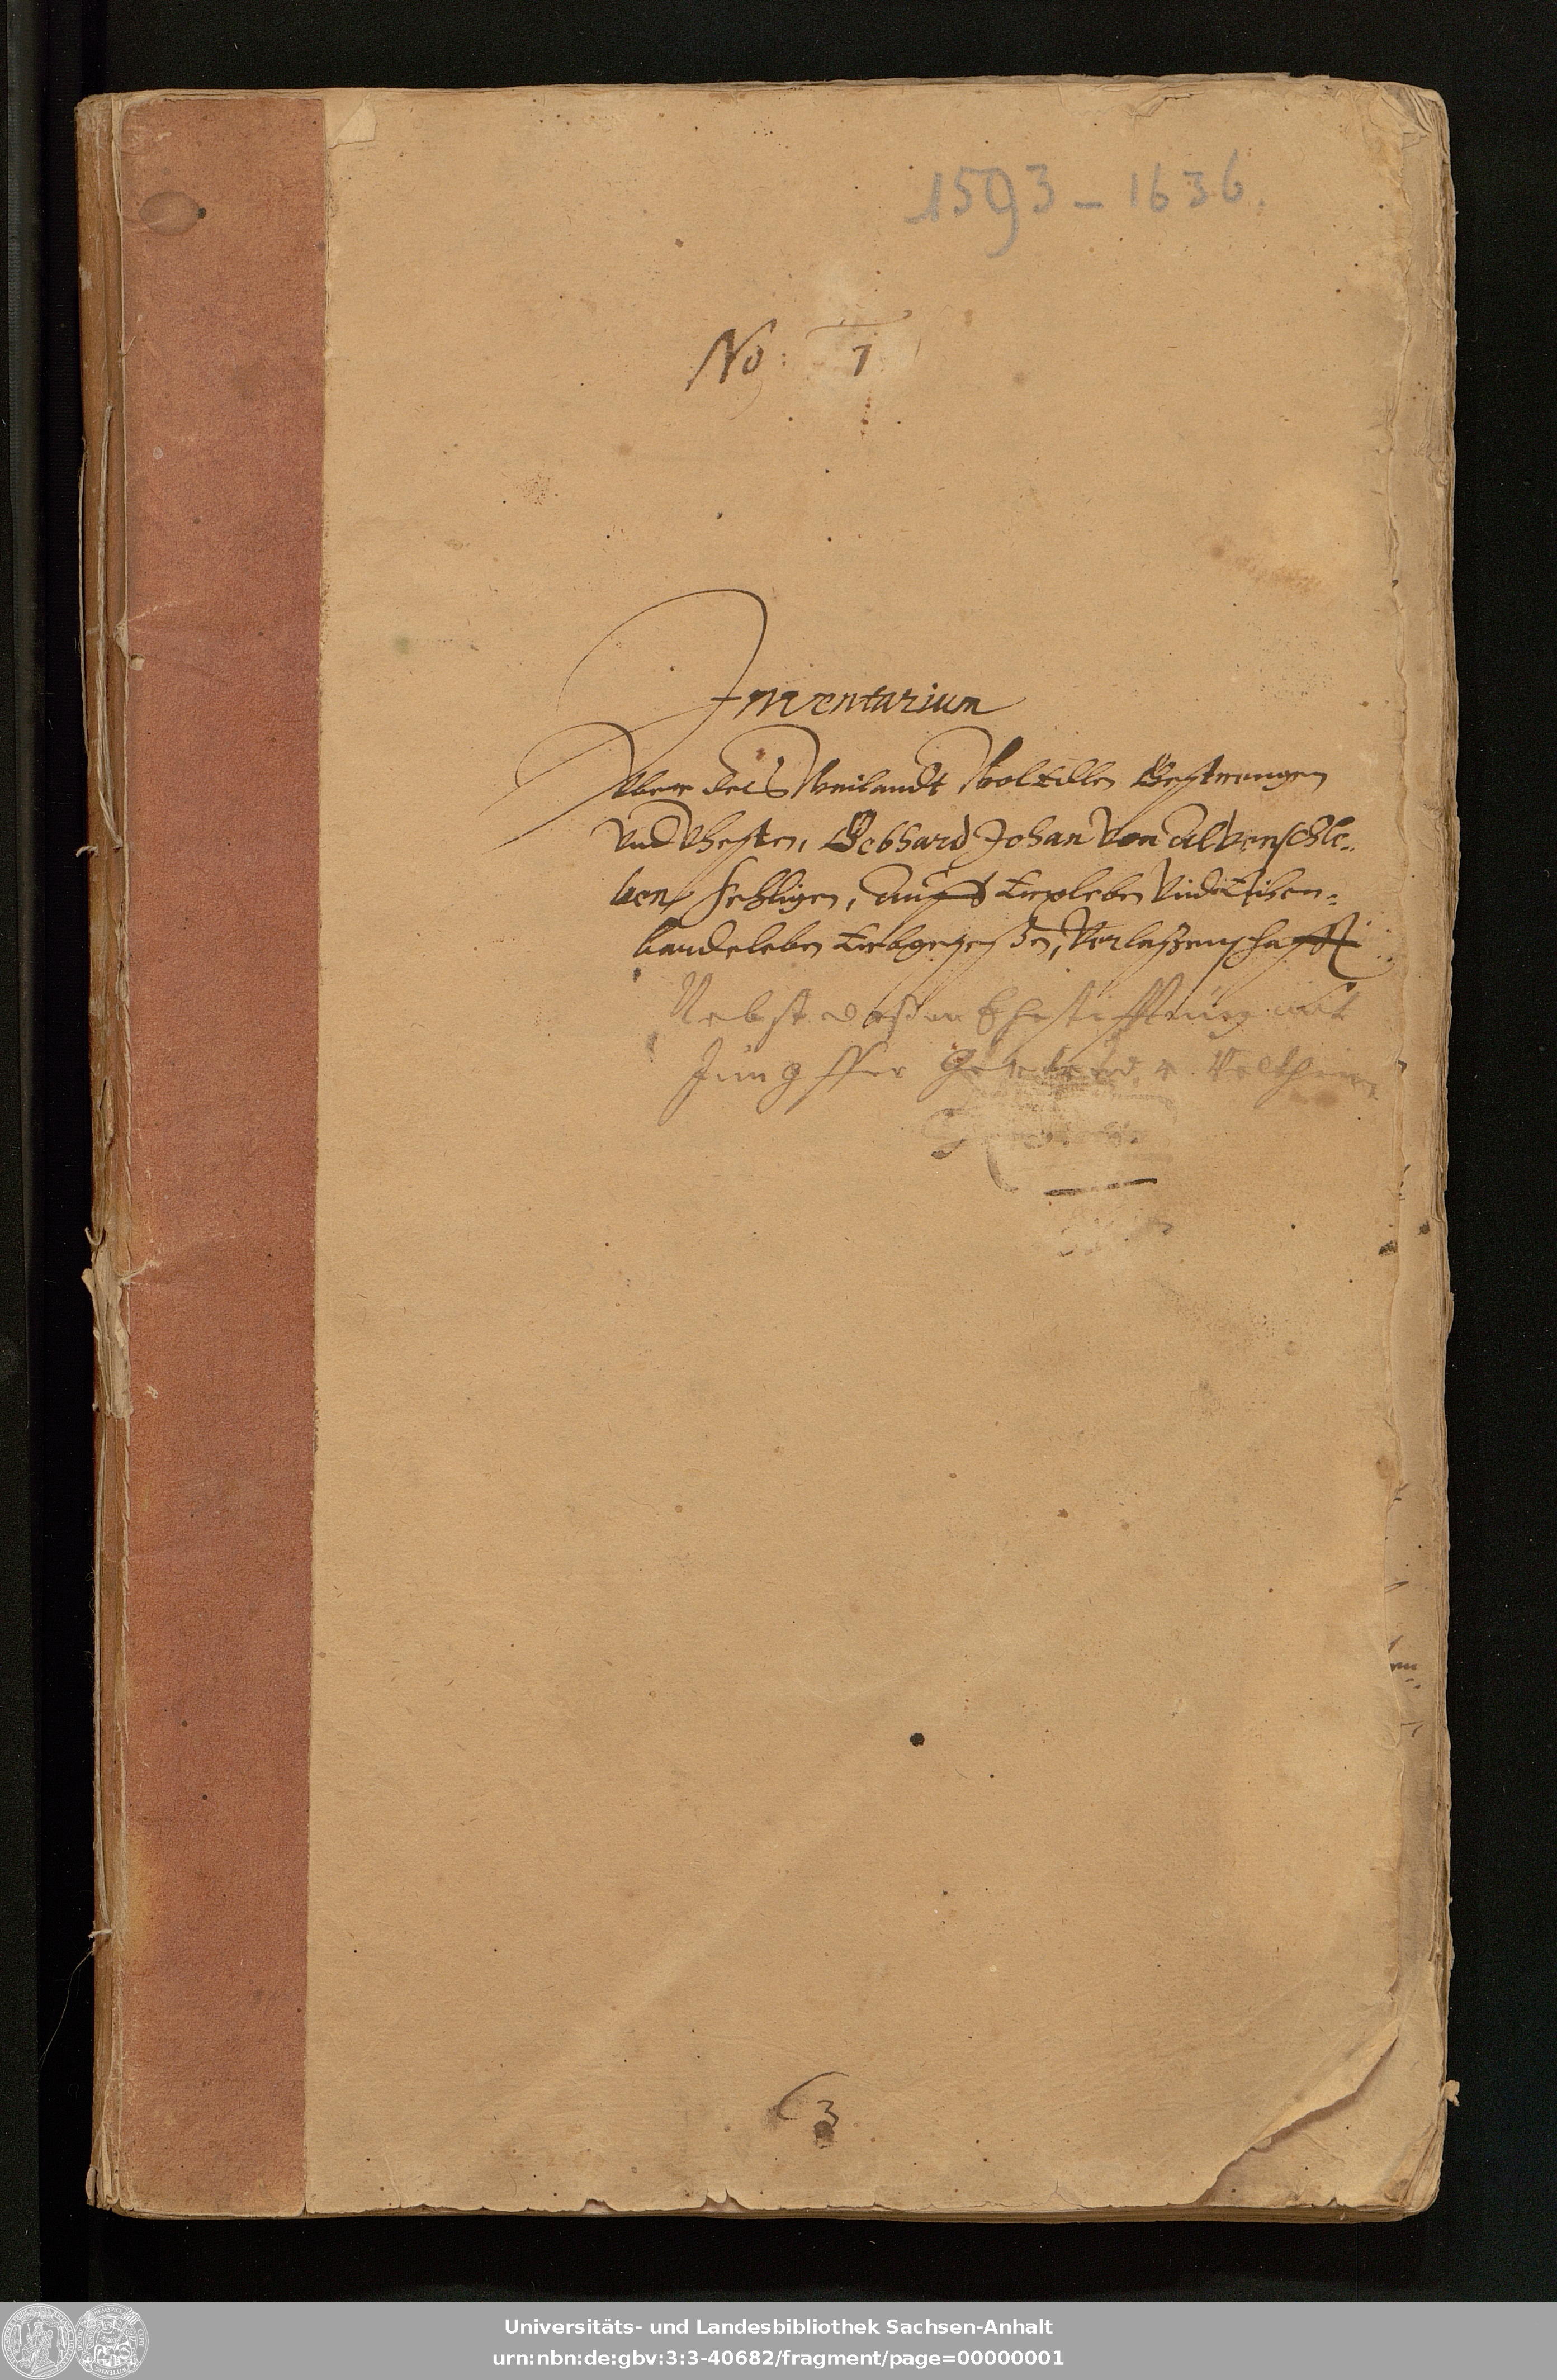 1593 - 1636.
No: 7
Inventarium
Vber des Weilandt Woledlen Gestrengen
Vnd Vhesten, Gebhard Johan Von Alvenschle-
ben Sehligen, Auff Erxleben Vnd Eisen-
Erbgeseßen, Verlaßenschafft
Nebst deßen Ehestifftung mit
Jungffer v. Veltheim
3
Universitäts- und Landesbibliothek Sachsen-Anhalt
urn:nbn:de:gbv:3:3-40682/fragment/page=00000001